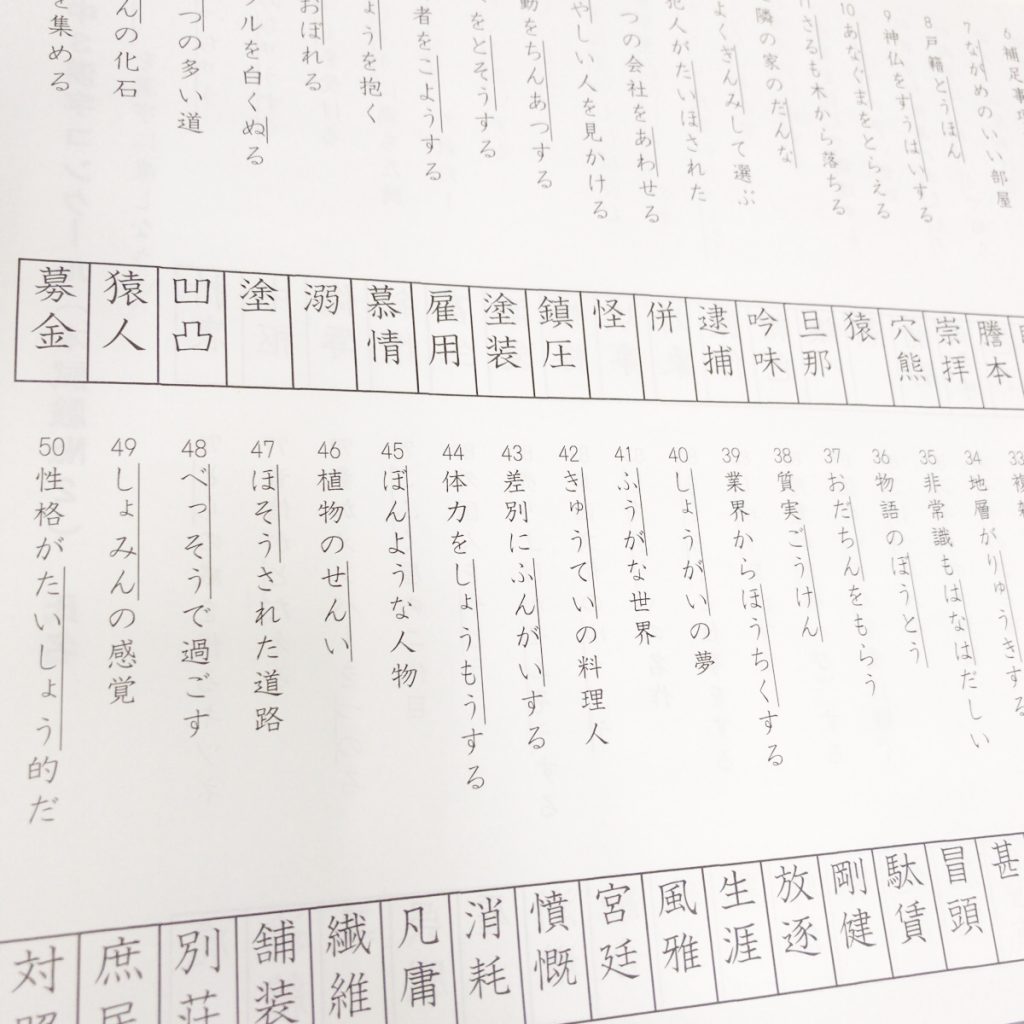 6 補足事
7 ながめのいい部屋
8 戸籍とうほん
9 神仏をすうはいする
10 あなぐまをとらえる
さるも木から落ちる
隣の家のだんな
よくぎんみして選ぶ
犯人がたいほされた
つの会社をあわせる
やしい人を見かける
動をちんあつする
をとそうする
者をこようする
ょうを抱く
おぼれる
ルを白くぬる
つの多い道
んの化石
を集める
謄本
崇拝
穴熊
猿
旦那
吟味
逮捕
併
怪
鎮圧
塗装
雇用
慕情
溺
塗
凹凸
猿人
募金
33 複雑
34 地層がりゅうきする
35 非常識もはなはだしい
36 物語のぼうとう
37 おだちんをもらう
38 質実ごうけん
39 業界からほうちくする
40 しょうがいの夢
41 ふうがな世界
42 きゅうていの料理人
43 差別にふんがいする
44 体力をしょうもうする
45 ぼんような人物
46 植物のせんい
47 ほそうされた道路
48 べっそうで過ごす
49 しょみんの感覚
50 性格がたいしょう的だ
甚
冒頭
駄賃
剛健
放逐
生涯
風雅
宮廷
憤慨
消耗
凡庸
繊維
舗装
別荘
庶民
対照